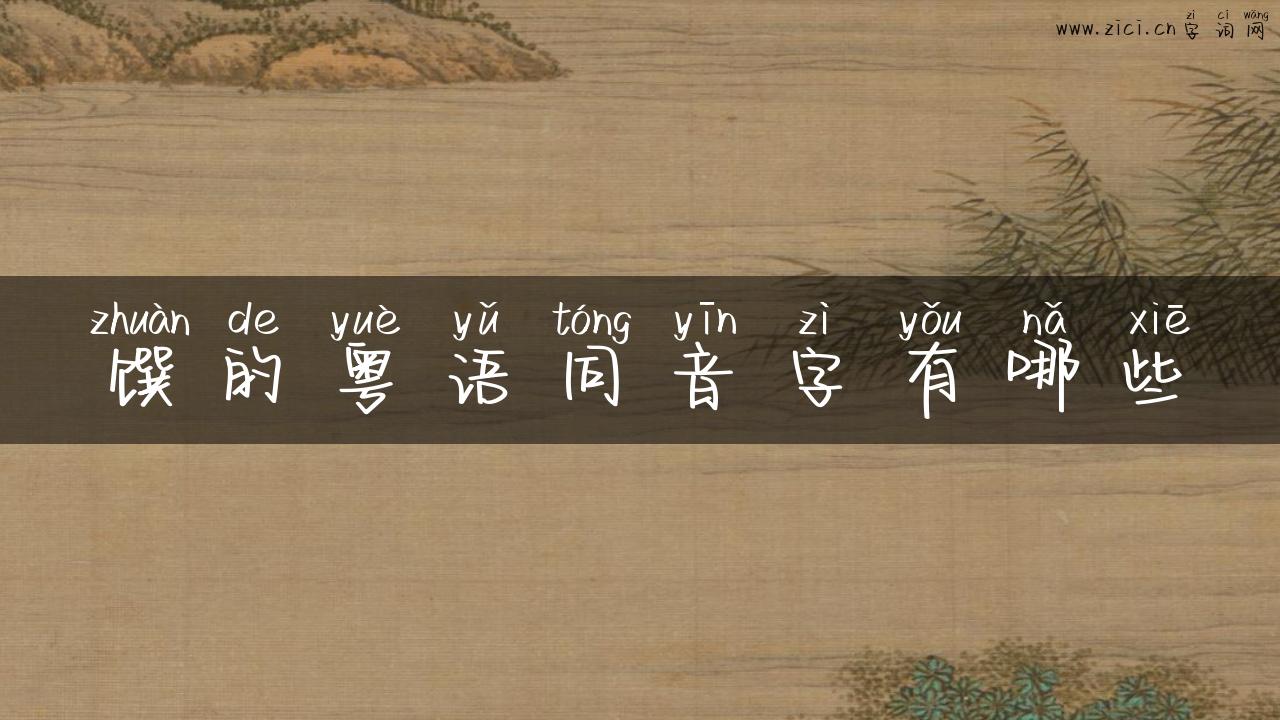 zì cí wǎng
www.zici.cn字词网
zhuàn de yuè yǔ tóng yīn zì yǒu nǎ xiē
馔的粤语同音字有哪些